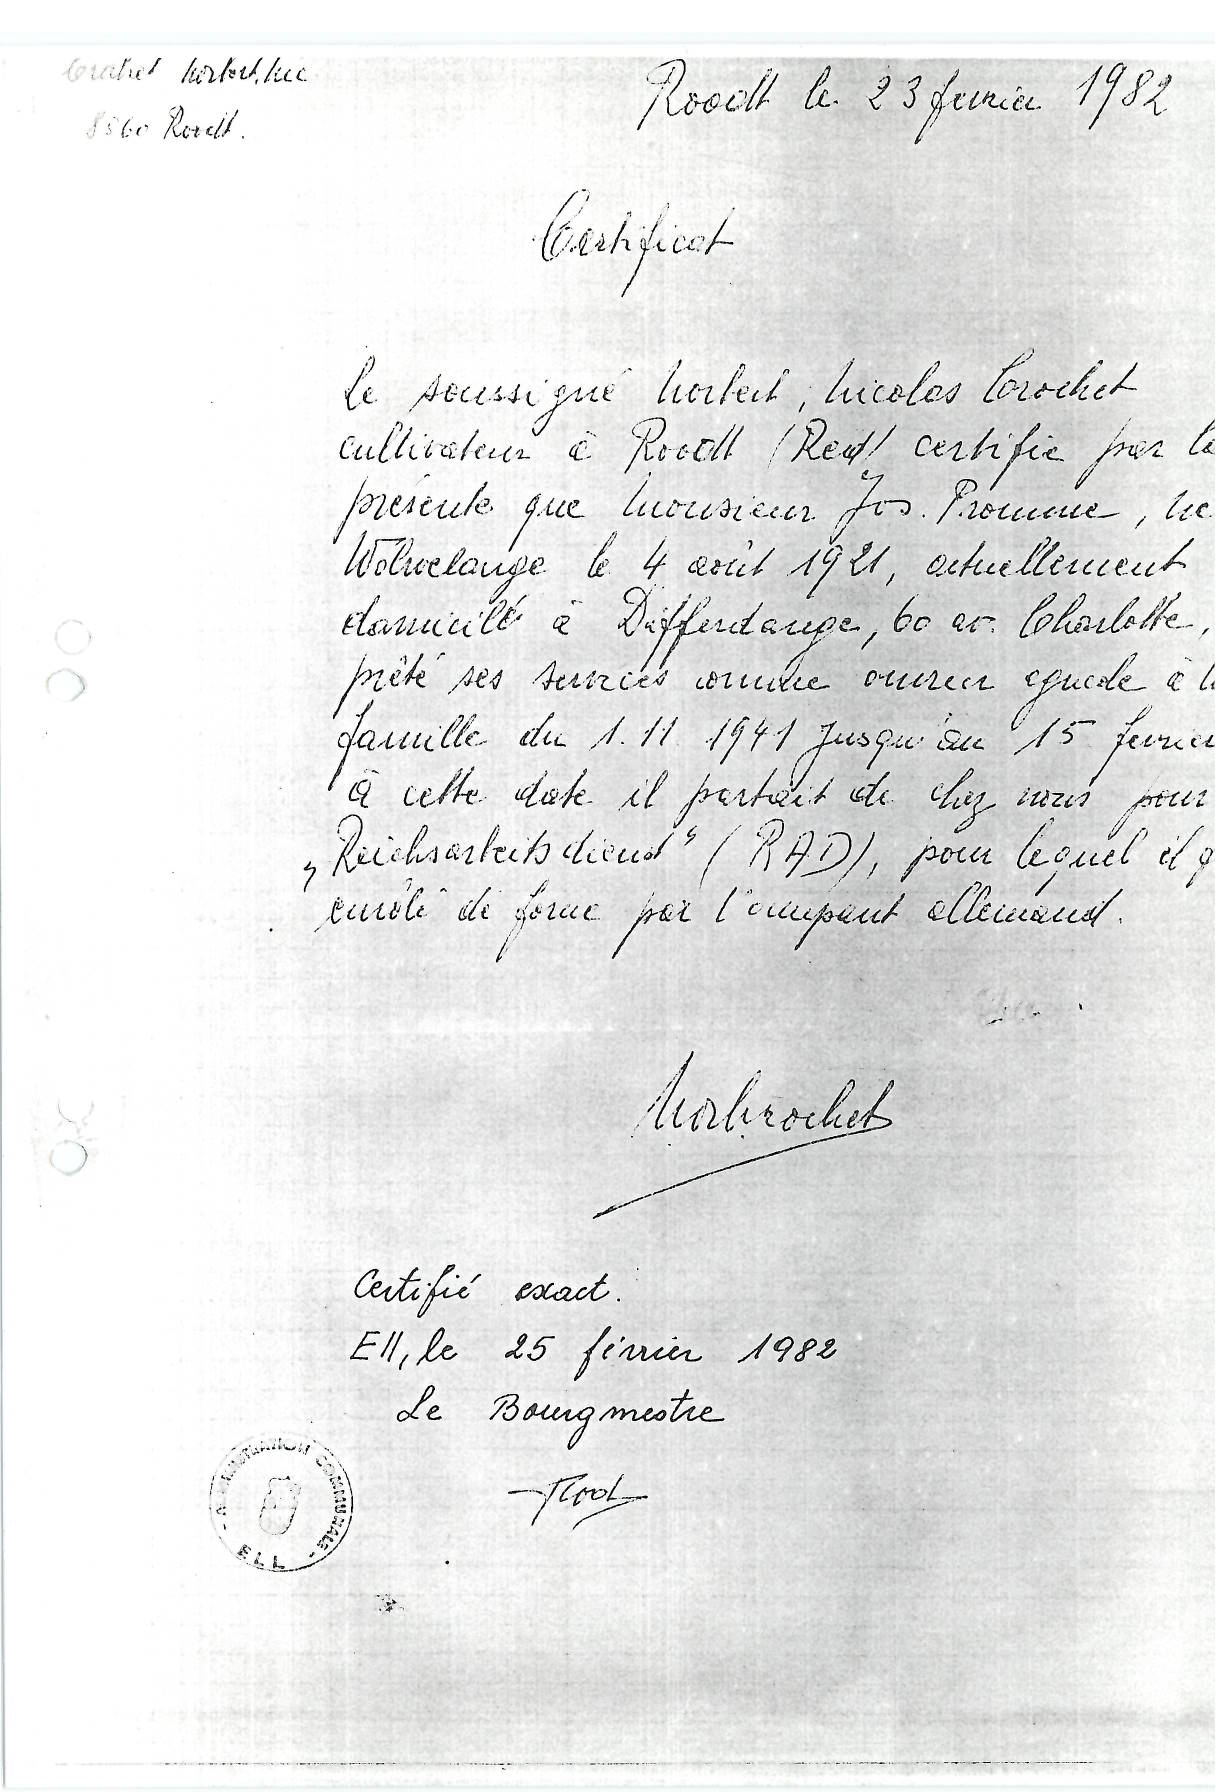 Crochet Norbert, Nic
8560 Roodt.
Roodt le 23 fevrier 1982
Certificat
Le soussigné Norbert, Nicolas Crochet
cultivateur à Roodt (Red) certifie par la
présente que Monsieur Jos. Promme, né
Wolwelange le 4 août 1921, actuellement
domicilé à Differdange, 60 av. Charlotte,
prêté ses services comme ouvrier agricole à
famille du 1.11 1941 jusqu'au 15 fevrier
à cette date il partait de chez nous pour
„Reichsarbeitsdienst" (RAD), pour lequel il
enrôlé de force par l'occupant allemand.
Norb Crochet
Certifié exact.
Ell, le 25 février 1982
Le Bourgmestre
- ADMINISTRATION COMMUNALE -
ELL